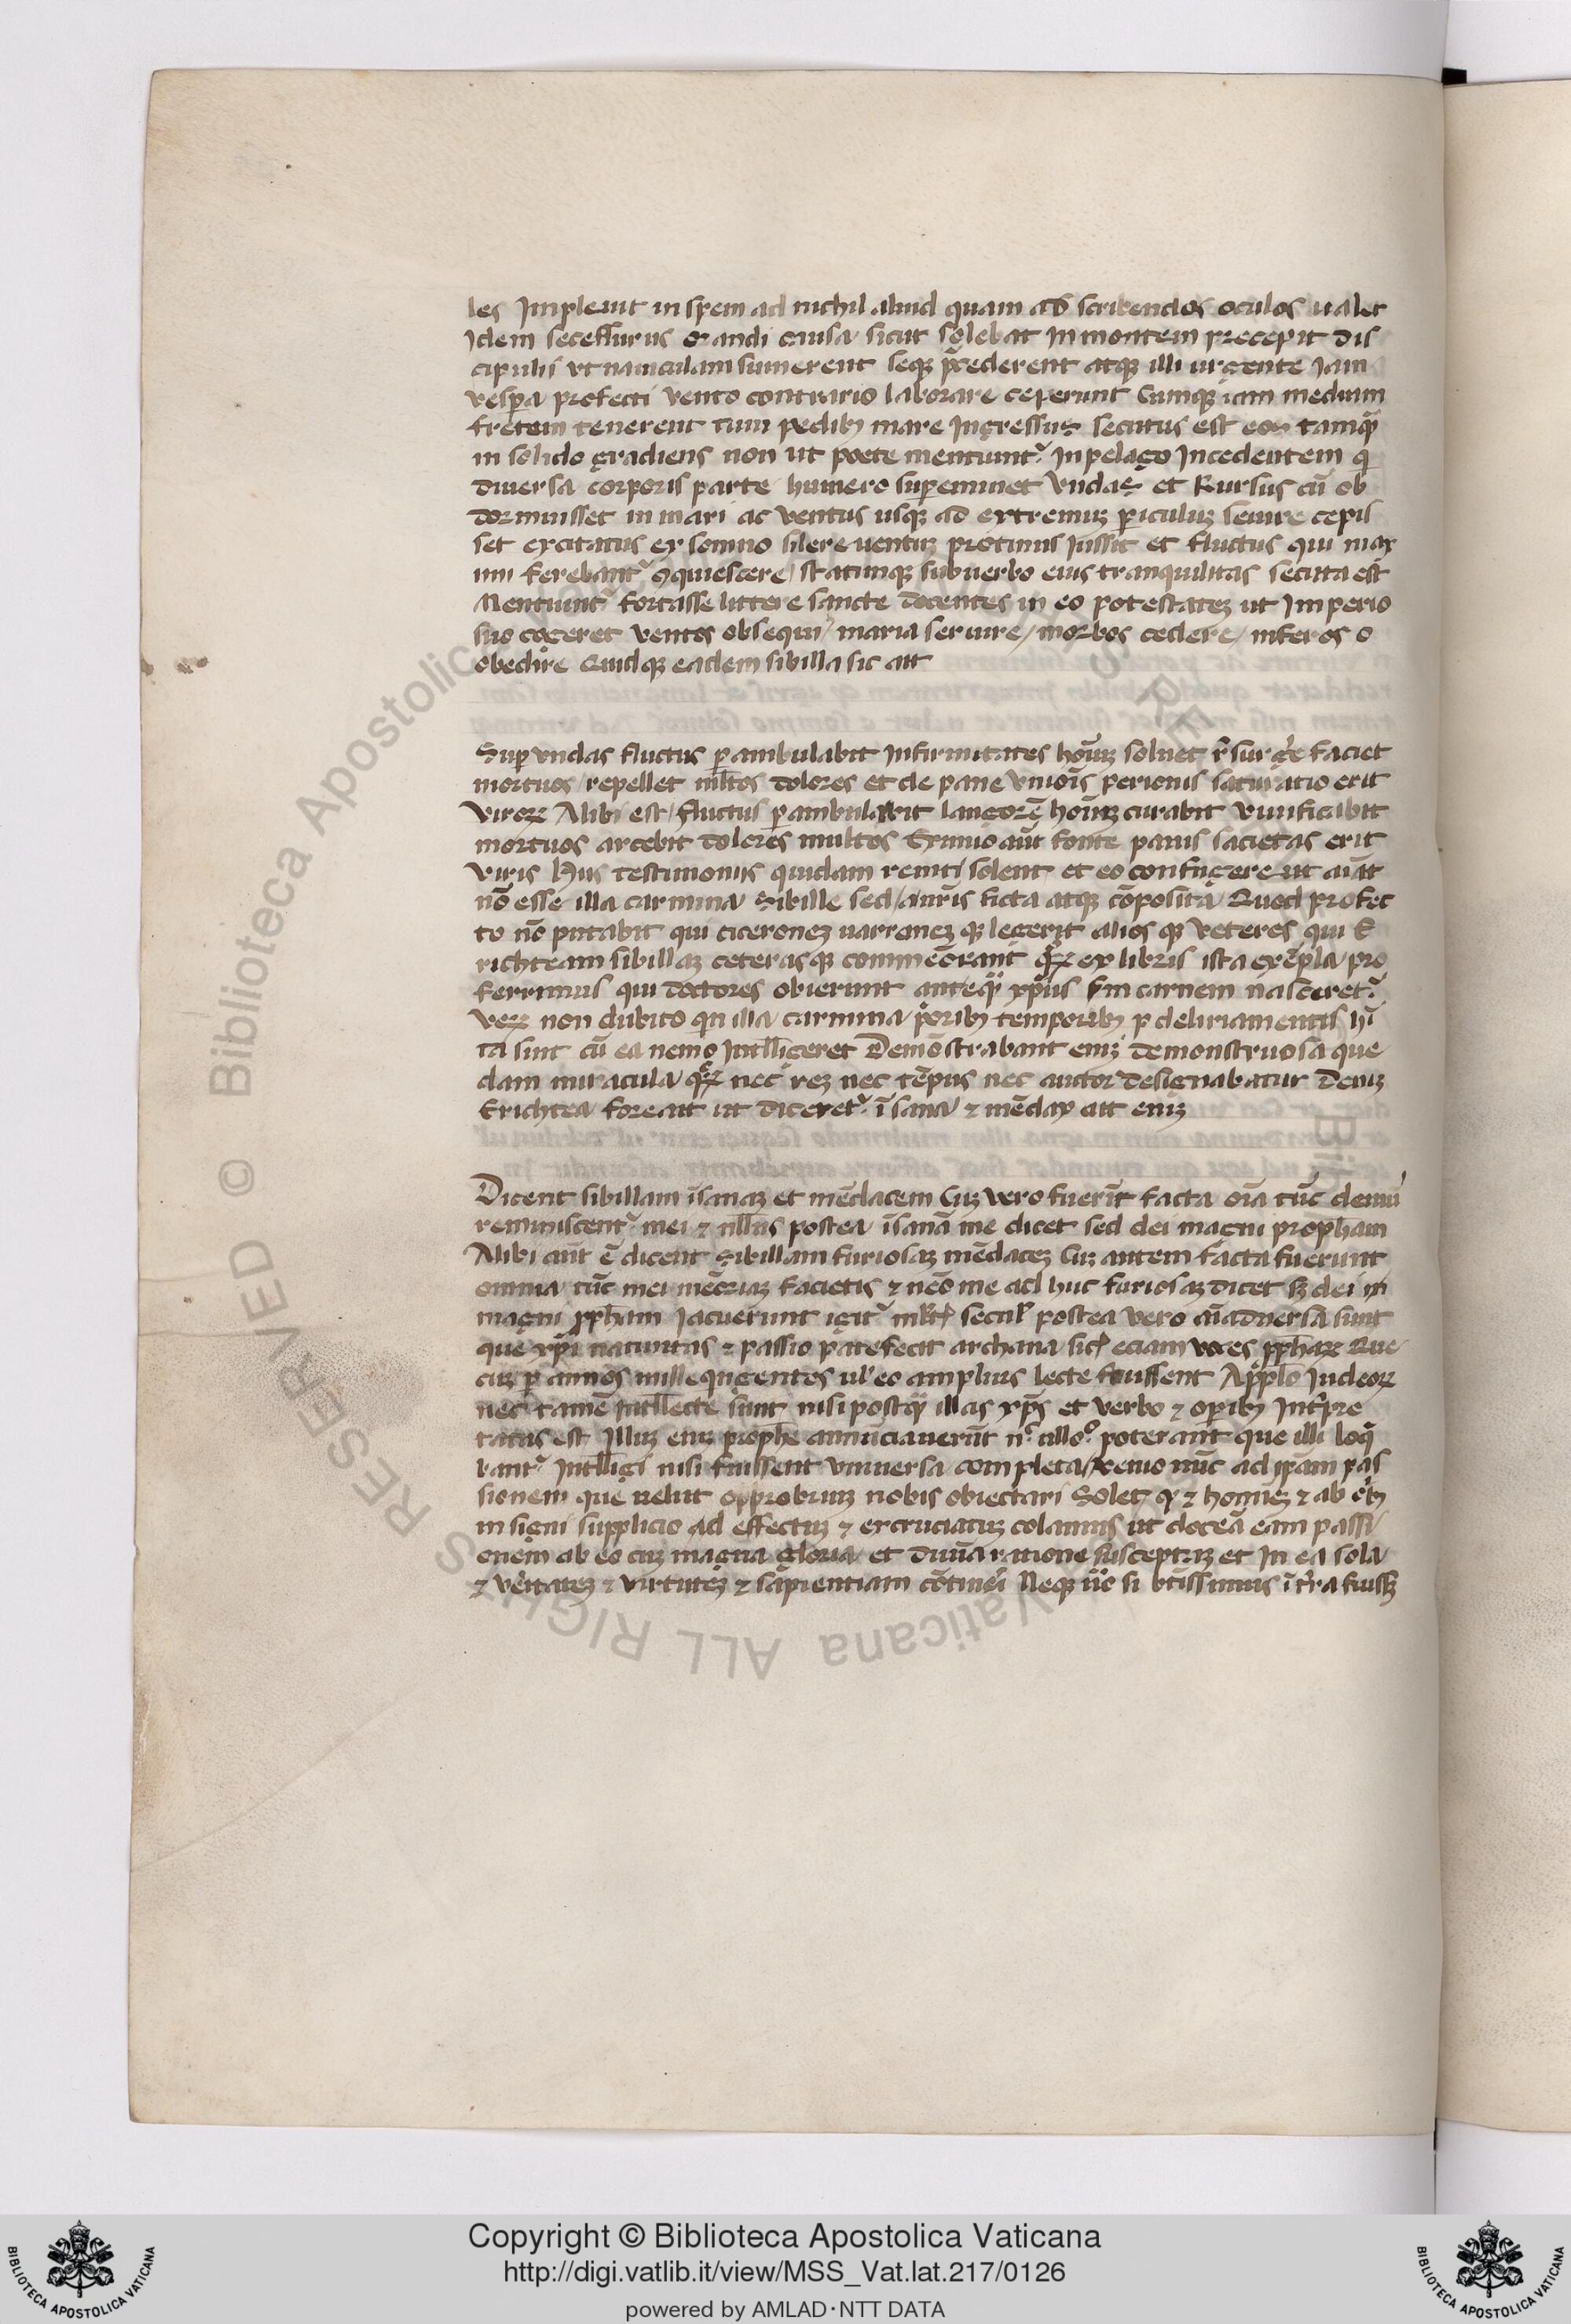 les Jmpleuit in spem ad nichil aliud quam ad scribendos oculos ualet
Jdem secessurus orandi causa sicut solebat in montem precepit dis
cipulis vt nauiculam sumerent seqꝫ p̄cederent atqꝫ illi urgente iam
vesꝑa profecti vento contrario laborare ceperunt Cumqꝫ iam medium
fretum tenerent tum pedibꝫ mare ingressus secutus est eos tamqͣ
in solido gradiens non ut poete mentiunt᷑ in pelago incedentem
diuersa corporis parte humero suꝑeminet vndas et Rursus cū ob
dormuisset in mari ac ventus usqꝫ ad extremuꝫ ꝑiculuꝫ seuire cepis
set excitatus ex somno silere uentuꝫ protinus iussit et fluctus qui max
imi ferebant᷑ ꝯquiescere / statimqꝫ sub uerbo eius tranquilitas secuta est
Mentiunt᷑ fortasse littere sancte docentes in eo potestateꝫ ut Jmperio
suo cogeret ventos obsequi / maria seruire / morbos cedere / inferos o
obedire Quidqꝫ eadem sibilla sic ait
Suꝑ vndas fluctus ꝑambulabit infirmitates hoīuꝫ soluet r̄surgͤe faciet
mortuos / repellet ml̄tos dolores et de pane satiatio erit
viroꝝ Alibi est / fluctus ꝑambulabit langorē hoīuꝫ curabit viuificabit
mortuos arcebit dolores multos Ex uno aūt fonte panis sacietas erit
viris Hijs testimonijs quidam reuicti solent et eo confugere ut aiāt
nō esse illa carmina sibille sed / a nr̄is ficta atqꝫ cōposita Quod profec
to nō putabit qui ciceroneꝫ uarroneꝫ qꝫ legerit alios qꝫ veteres qui E
richteam sibillaꝫ ceterasqꝫ commeōrant qͣꝝ ex libris ista exēpla / pro
ferrimus qui doctores obierunt anteqͣ xp̄us ẜm carnem nasceret᷑
veꝝ non dubito qn illa carmina p̄oribꝫ temporibꝫ ꝑ deliriamentis hī
ta sint cū ea nemo intll̄igeret Demōstrabant eniꝫ demonstruosa que
dam miracula qͣꝝ nec reꝫ nec tēpus nec auctor designabatur Deniꝫ
Erichtea fore ait ut diceret᷑ īsana ⁊ mēdax ait eniꝫ
Dicent sibillam īsanaꝫ et mēdacem Cuꝫ vero fuerīt facta oīa tūc demū
reminiscent᷑ mei ⁊ nll̄us postea īsanā me dicet sed dei magni propham
Alibi aūt ē dicent sibillam furiosaꝫ mēdaceꝫ Cuꝫ autem facta fuerunt
omnia tūc mei mēoriaꝫ facietis ⁊ neō me ad huc furiosaꝫ dicet sꝫ dei in
magni ꝓph̄am Jacuerunt igit᷑ ml̄t secul postea vero aīaduersa sunt
que xp̄i natiuitas ⁊ passio patefecit archana sic eciam voces ꝓph̄aꝝ Que
cuꝫ ꝑ annos mille qngentos ul̄ eo amplius lecte fuissent Appl̄o iudeoꝝ
nec tamē intll̄ecte sunt nisi postqͣ illas xp̄s et verbo ⁊ oꝑibꝫ int̄pre
tatus est Jlluꝫ eniꝫ prophe annūciauerūt n̄ ullo° poterant que illi loqͣ
bant᷑ intll̄igi nisi fuissent vniuersa completa / venio nūc ad ip̄am pas
sionem que uelut opprobriuꝫ nobis obiectari Solet qꝫ ⁊ hoīneꝫ ⁊ ab
insigni supplicio ad effectuꝫ ⁊ excruciatuꝫ colamus ut doceā eam passi
onem ab eo cuꝫ magna gloria et diuīa ratione susceptaꝫ et in ea sola
⁊ vēritateꝫ ⁊ virtuteꝫ ⁊ sapientiam cōtinēi Neqꝫ si btīssimus ī tr̄ra fuissꝫ
Copyright © Biblioteca Apostolica Vaticana
http://digi.vatlib.it/view/MSS_Vat.lat.217/0126
powered by AMLAD·NTT DATA
BIBLIOTECA APOSTOLICA VATICANA
BIBLIOTECA APOSTOLICA VATICANA
© Biblioteca Apostolica Vaticana ALL RIGHTS RESERVED